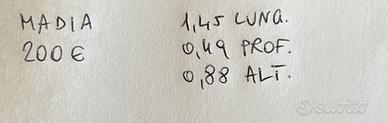 MADIA
200 €
1,45 LUNG.
0,49 PROF.
0,88 ALT.
subito